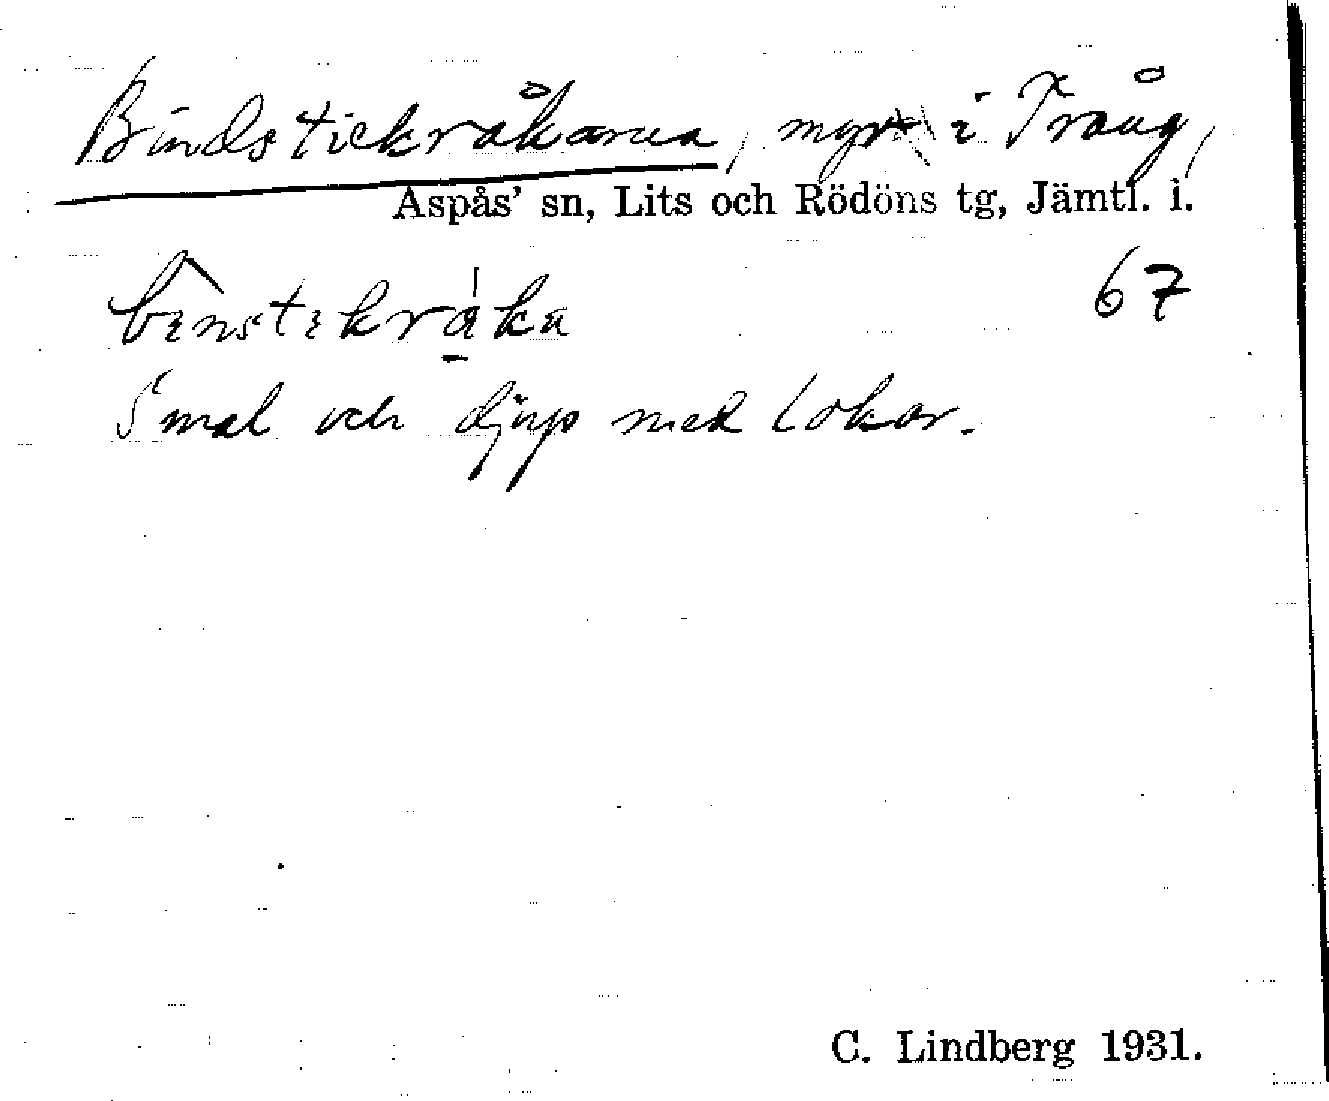 Bindstickråkarna, myr i Trång,
Aspås' sn, Lits och Rödöns tg, Jämtl. i.
67
Smal och djup med lokar.
C. Lindberg 1931.